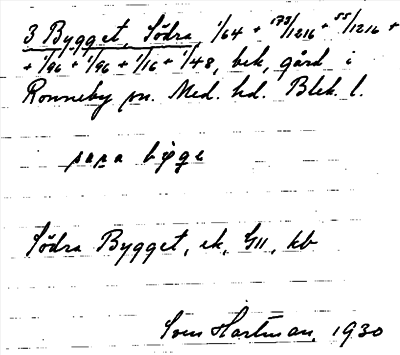 3 Bygget, Södra 1/64 + 173/1216 + 55/1216 +
+ 1/96 + 1/96 + 1/16 + 1/48, bek, gård i
Ronneby sn. Med. hd. Blek. l.
Södra Bygget, ek, GII, kb
Sven Hartman, 1930